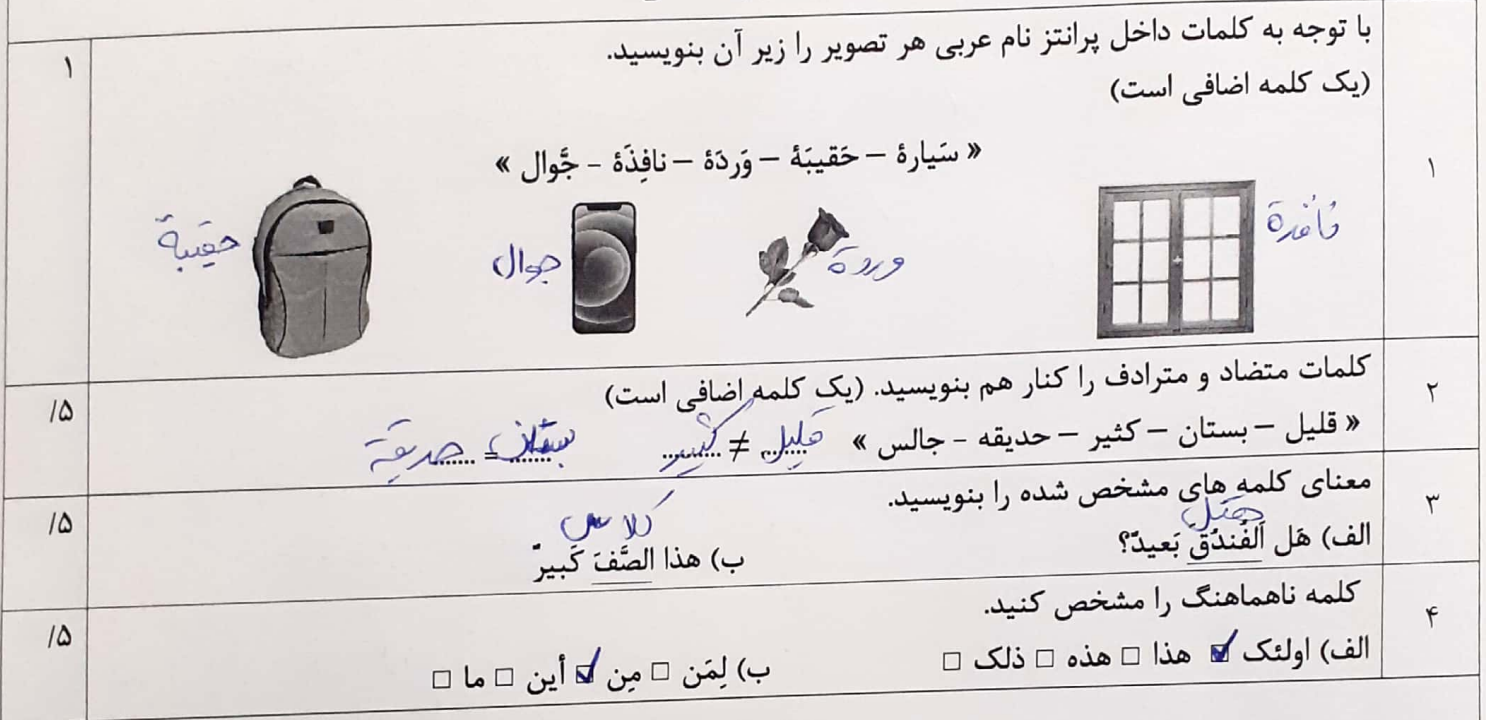 با توجه به کلمات داخل پرانتز نام عربی هر تصویر را زیر آن بنویسید.
۱
(یک کلمه اضافی است)
۱
« سَیارة – حَقیبَة – وَردَة – نافِذَة - جَّوال »
نافذة
وردة
جوال
حقیبة
۲
کلمات متضاد و مترادف را کنار هم بنویسید. (یک کلمه اضافی است)
/۵
« قلیل – بستان – کثیر – حدیقه - جالس » قلیل ≠ کثیر بستان = حدیقة
۳
معنای کلمه های مشخص شده را بنویسید.
/۵
هتل کلاس
الف) هَل اَلفُندُقَ بَعیدٌ؟ ب) هذا الصَّفَ کَبیرٌ
۴
کلمه ناهماهنگ را مشخص کنید.
/۵
الف) اولئک ☑ هذا □ هذه □ ذلک □ ب) لِمَن □ مِن ☑ أین □ ما □